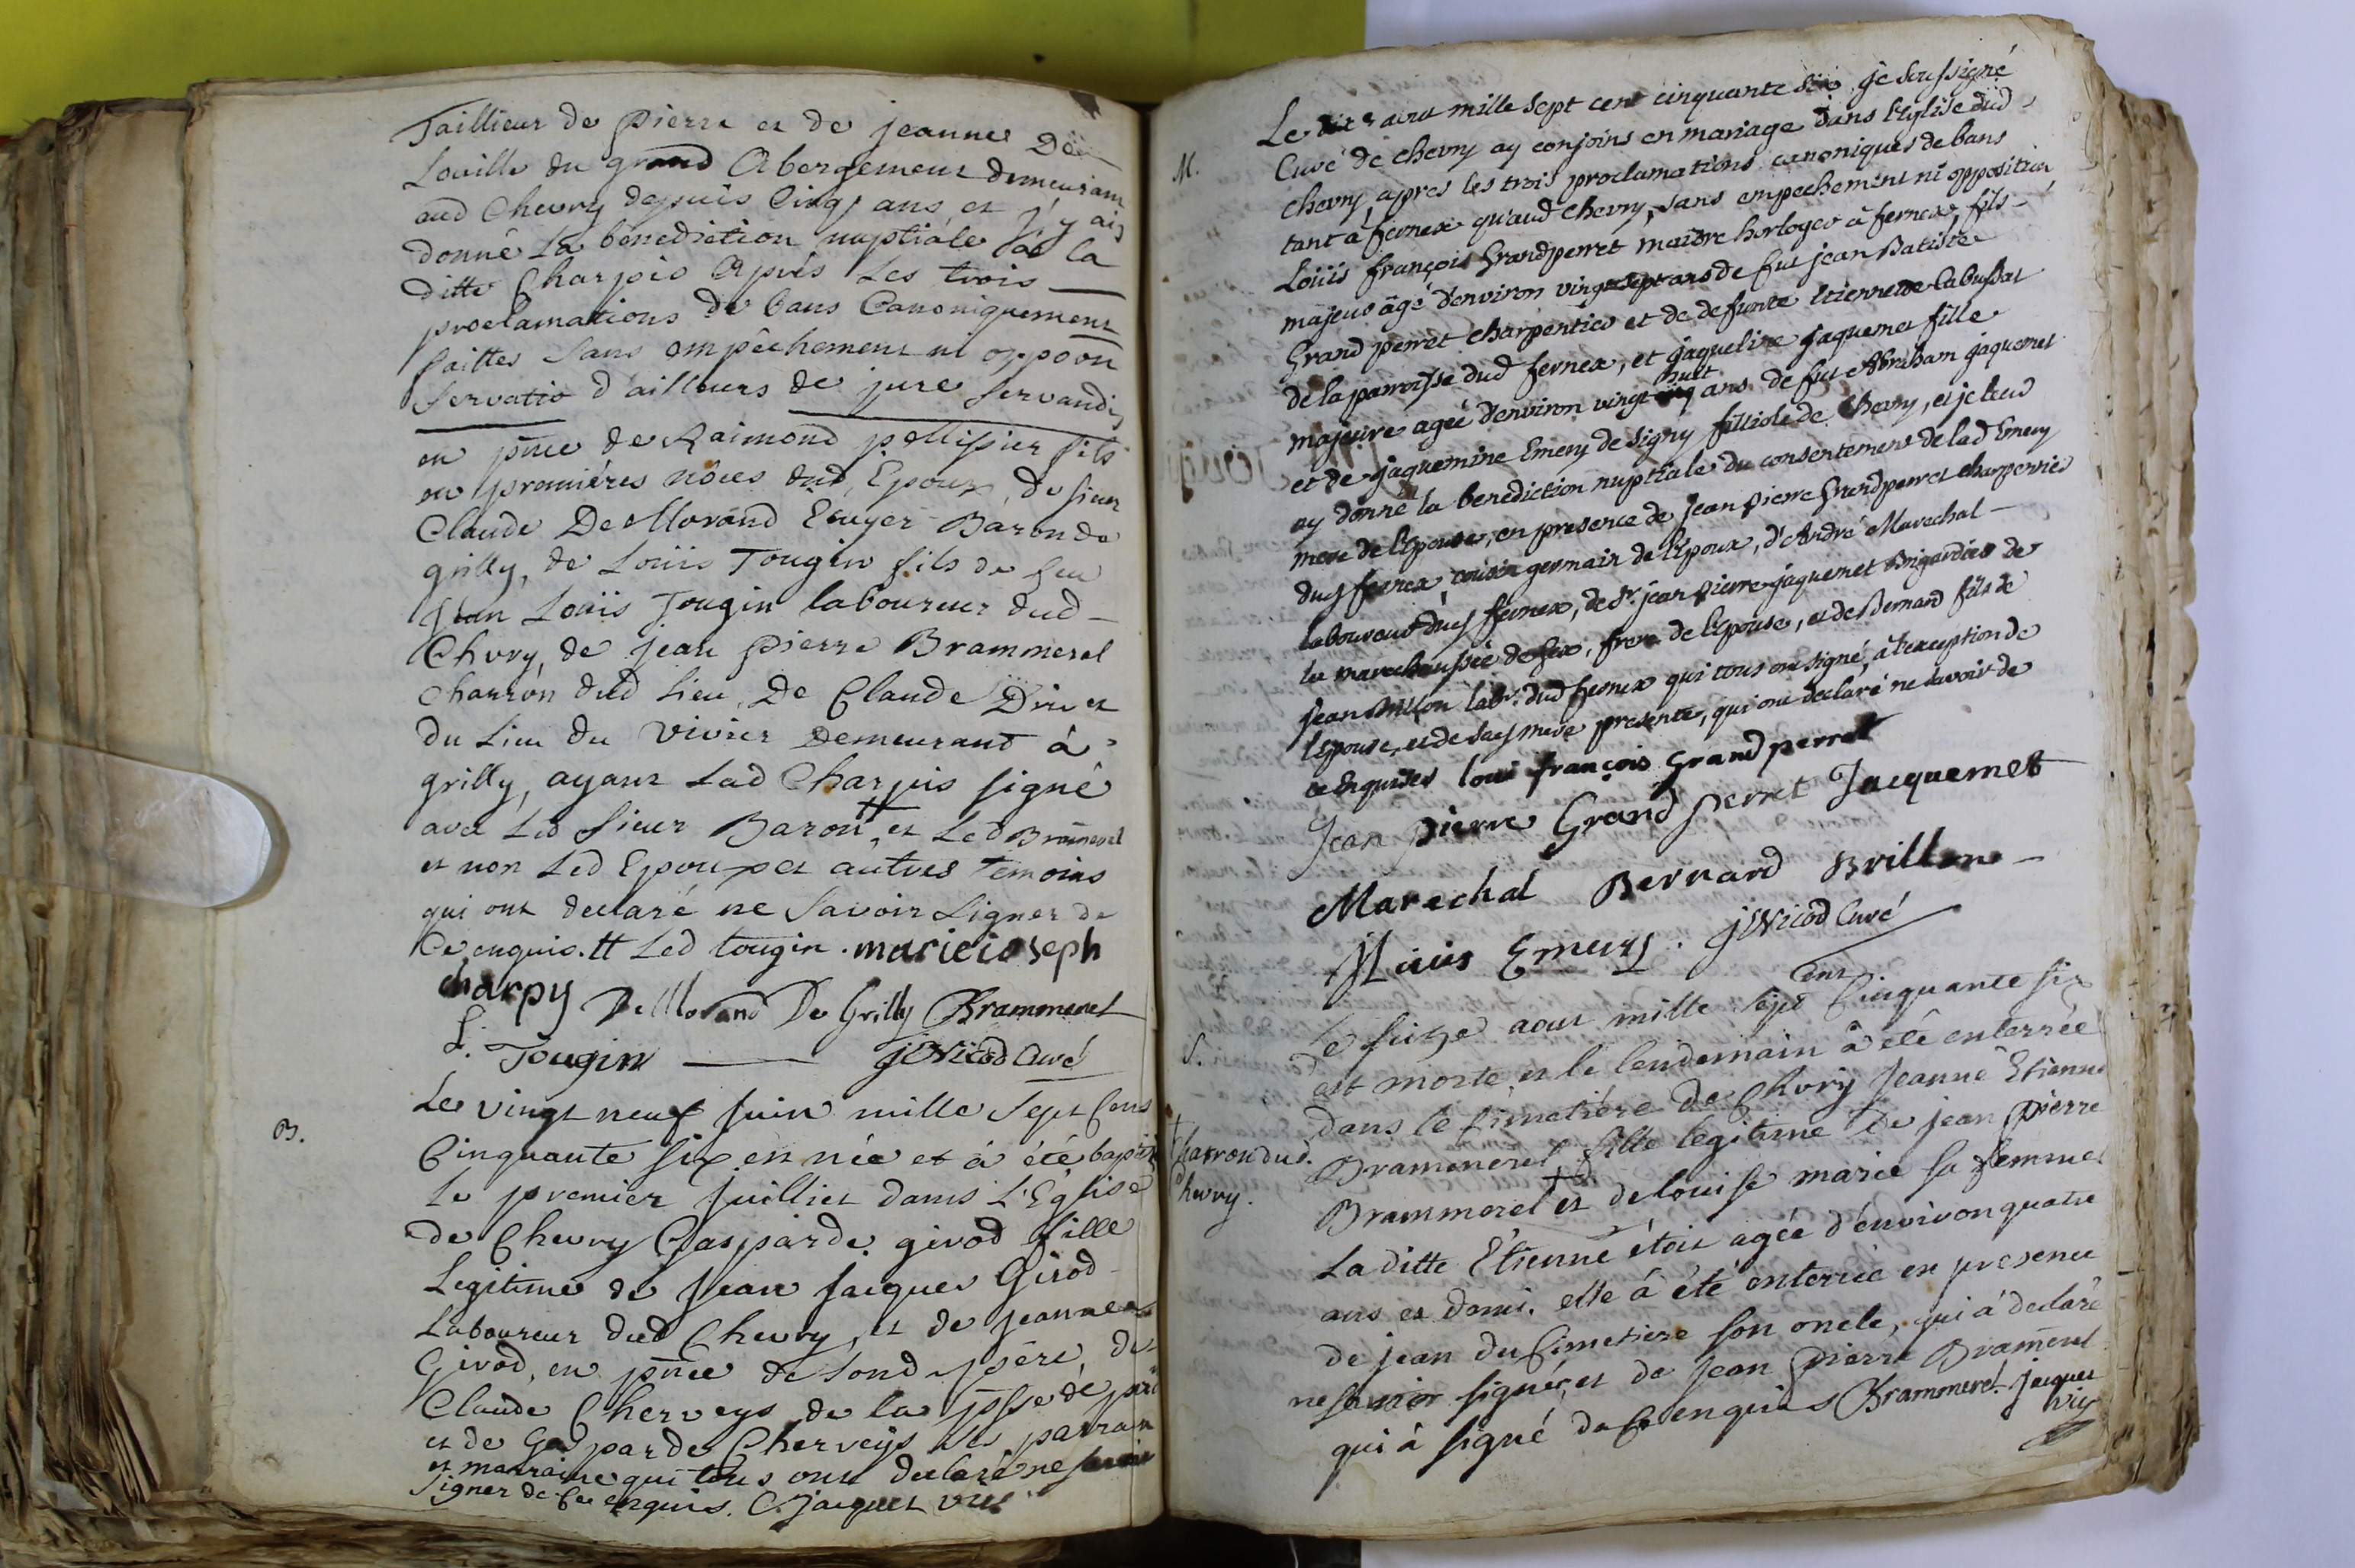 Taillieur de pierre et de jeanne De
Loville du grand Abergement demeurant
aud Chevry depuis Cinq ans, et j'y ai
donné La bénediction nuptiale à la
ditte Charpis Après Les trois
proclamations de bans Canoniquement
faittes sans empêchement ni oppoon
servatis d'ailleurs de jure servandis
en pnce de Raimond pellissier fils
en premières nôces dud Epoux, du sieur
Claude De Morand Ecuyer Baron de
grilly, de Loüis Tougin fils de feu
Jean Loüis Tougin laboureur dud
Chvry, de jean pierre Brammerel
Charron dud Lieu, De Claude
du Lieu du Vivier Demeurant à
grilly, ayant Lad Charpis signé
avec Led sieur Baron, et Led Bramerel
et non Led Epoux et autres temoins
qui ont declaré ne savoir signer de
Ce enquis. Led tougin. marie ioseph
charpy De Morand De Grilly Brammerel
L. Tougin JNicod Curé
B.
Le vingt neuf juin mille sept Cens
Cinquante six est née et à été baptisée
Le premier juilliet dans L'Église
de Chevry Gasparde girod fille
Legitime de jean jacques Girod
Laboureur dud Chevry, et de jeanne
Girod, en pnce de sond père, de
Claude Cherveys de la psse de
et de Gasparde Cherveys ses parrain
et marraine qui tous ont declaré ne savoir
signer de Ce enquis. C. jacquet vic
M.
Le aout mille sept cent cinquante six je soussigné
Curé de chevry ay conjoins en mariage dans l'Eglise dud
chevry, apres les trois proclamations canoniques de bans
tant à fernex qu'aud chevry, sans empechement ni opposition
Loüis françois Grandperret maitre horloger à fernex, fils
majeur âgé d'environ vingt sept ans de fut jean Batiste
Grand perret charpentier et de defunte Etiennette Labussat
de la parroisse dud fernex, et jaqueline jaquemet fille
majeure agée d'environ vingt huit ans de fut Abraham jaquemet
et de jaquemine Emery de signy filliole de Chevry, et je leur
ay donné la benediction nuptiale du consentement de lad Emery
mere de l'Epouse, en presence de jean pierre Grandperret charpentier
dud fernex, cousin germain de l'Epoux, d'André Marechal
laboureur dud fernex, de Sr. jean pierre jaquemet Brigardier de
la marechaussée de gex, frere de l'Epouse, et de Bernard fils de
jean Brillon labr. dud fernex qui tous ont signé, à l'exception de
l'Epouse, et de sad mere presente, qui ont declaré ne savoir de
ce enquises loui françois Grandperret
Jean pierre Grand perret Jacquemet
Marechal Bernard Brillon
Emery. JNicod Curé
S.
Le seize aout mille sept Cent Cinquante six
est morte et le lendemain à été enterrée
dans le Cimetière de Chvry Jeanne Etienne
Brammerel fille legitime de jean pierre
Brammerel et de louise marie sa femme
Charron dud.
Chevry.
La ditte Etienne étoit agée d'environ quatre
ans et demi. elle à été enterrée en presence
de jean du Cimetiere son oncle, qui à declaré
ne savoir signer, et de jean pierre Bramerel
qui à signé de Ce enquis Brammerel. jacquet
vic